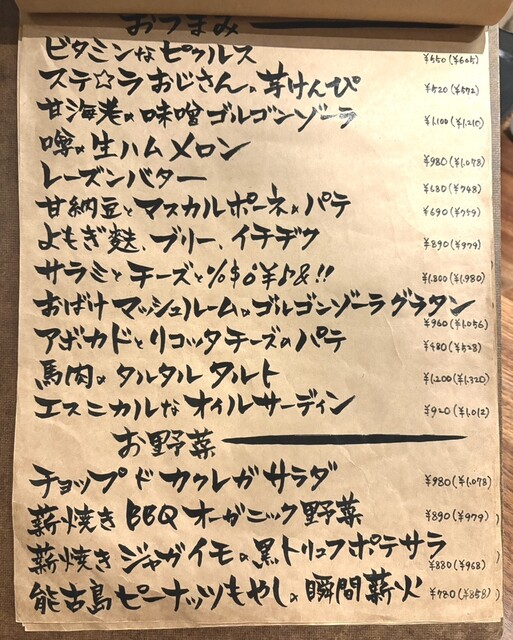 おつまみ
ビタミンなピクルス ¥550(¥605)
ステ☆ラおじさんの芋けんぴ ¥520(¥572)
甘海老の味噌ゴルゴンゾーラ ¥1.100(¥1.210)
噂の生ハムメロン ¥980(¥1.078)
レーズンバター ¥680(¥748)
甘納豆とマスカルポーネのパテ ¥690(¥759)
よもぎ麩、ブリー、イチヂク ¥890(¥979)
サラミとチーズと%$♂¥♪&!! ¥1.800(¥1.980)
おばけマッシュルームのゴルゴンゾーラグラタン ¥960(¥1.056)
アボカドとリコッタチーズのパテ ¥480(¥528)
馬肉のタルタルタルト ¥1.200(¥1.320)
エスニカルなオイルサーディン ¥920(¥1.012)
お野菜
チョップドカクレガサラダ ¥980(¥1.078)
薪焼きBBQオーガニック野菜 ¥890(¥979)
薪焼きジャガイモの黒トリュフポテサラ ¥880(¥968)
能古島ピーナッツもやしの瞬間薪火 ¥780(¥858)